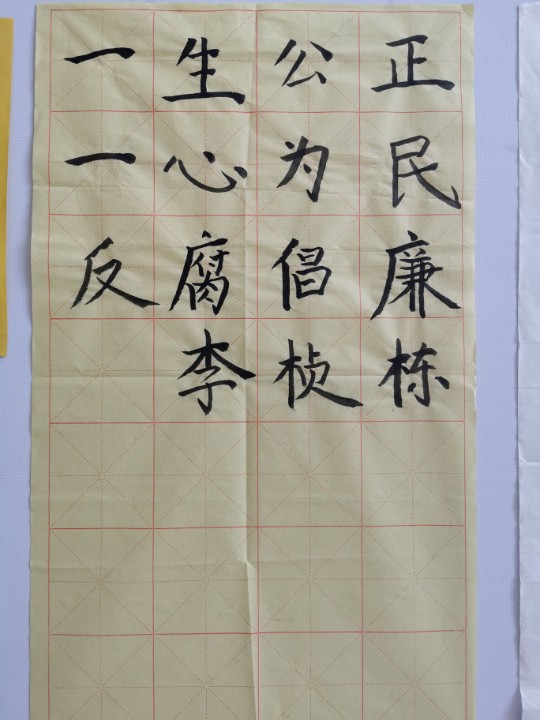 一生公正
一心为民
反腐倡廉
李桢栋